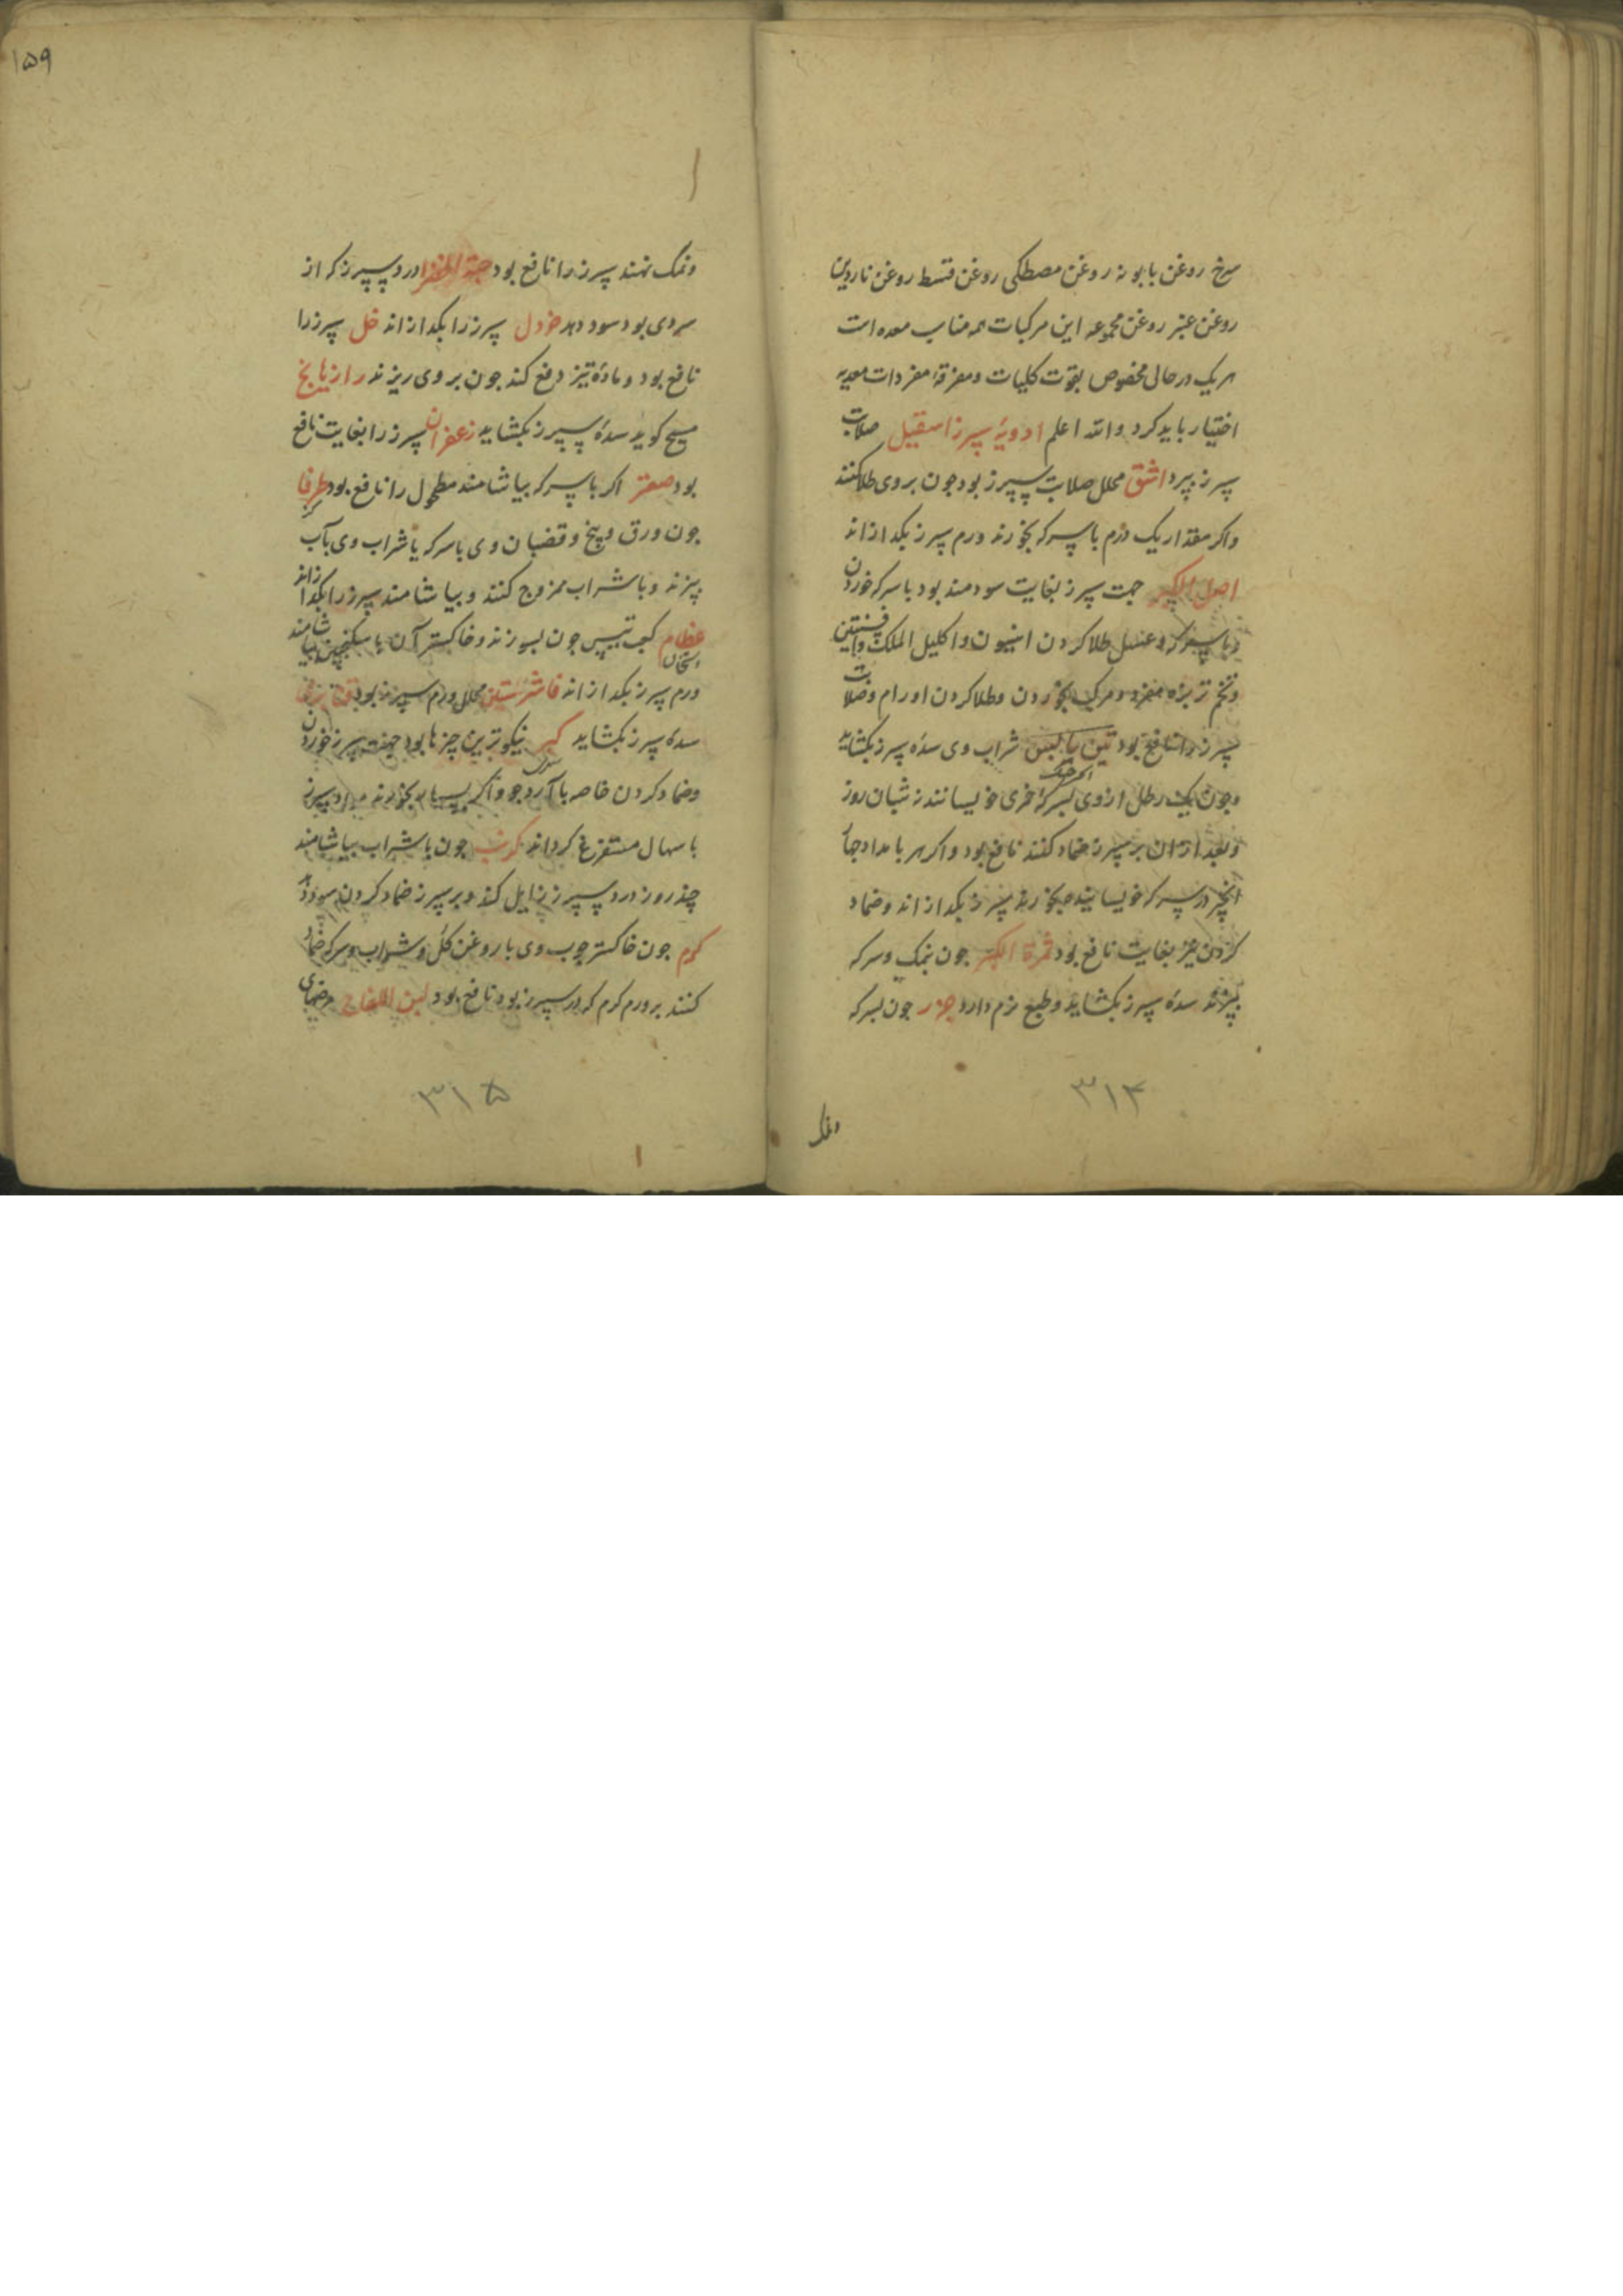 سرخ روغن بابونه روغن مصطکی روغن قسط روغن ناردین
روغن عنبر روغن مجموعه این مرکبات همه مناسب معده است
هریک در حالی مخصوص بقوت کلیات و معرفة مفردات معدیه
اختیار باید کرد والله اعلم ادویهٔ سپرز اسقیل صلابت
سپرز ببرد اشق محلل صلابت سپرز بود جون بر وی طلا کنند
واکر مقدار یک درم با سرکه بخورند ورم سپرز بکدازاند
اصل الکبر جهت سپرز بغایت سودمند بود با سرکه خوردن
وبا سرکه و عسل طلا کردن افتیمون واکلیل الملک وافسنتین
وتخم تربزه مفرد ومرکب بخوردن وطلا کردن اورام وصلابت
سپرز را نافع بود تین یابس شراب وی سدهٔ سپرز بکشاید
وجون یک رطل از وی بسرکهٔ خمری خویسانند نه شبان روز
وبعد ازان بر سپرز ضماد کنند نافع بود واکر هر بامداد
انجیر در سرکه خویسانیده بخورند سپرز بکدازاند وضماد
کردن نیز بغایت نافع بود ثمرة الکبر جون بنمک وسرکه
بپزند سدهٔ سپرز بکشاید وطبع نرم دارد جزر جون بسرکه
ونمک
۳۱۴
۱۵۹
ونمک نهند سپرز را نافع بود حبة الخضرا درد سپرز که از
سردی بود سود دهد خردل سپرز را بکدازاند خل سپرز را
نافع بود و مادهٔ تیز دفع کند جون بر وی ریزند رازیانج
مسیح کوید سدهٔ سپرز بکشاید زعفران سپرز را بغایت نافع
بود صعتر اکر با سرکه بیاشامند مطحول را نافع بود طرفا
جون ورق وبیخ وقضبان وی با سرکه یا شراب وی بآب
بپزند وبا شراب ممزوج کنند وبیاشامند سپرز را بکدازاند
عظام کعب تیس جون بسوزند وخاکستر آن با سکنجبین بیاشامند
استخوان
ورم سپرز بکدازاند فاشرستین محلل ورم سپرز بود
سدهٔ سپرز بکشاید کبر نیکوترین چیزها بود جهت سپرز خوردن
وضماد کردن خاصه با آرد جو واکر بخورند سپرز
باسهال مستفرغ کرداند کرنب جون با شراب بیاشامند
چند روز درد سپرز زایل کند وبر سپرز ضماد کردن سود دهد
کرم جون خاکستر چوب وی با روغن کل وشراب وسرکه ضماد
کنند بر ورم کرم که در سپرز بود نافع بود لبن اللقاح مرضهای
۳۱۵